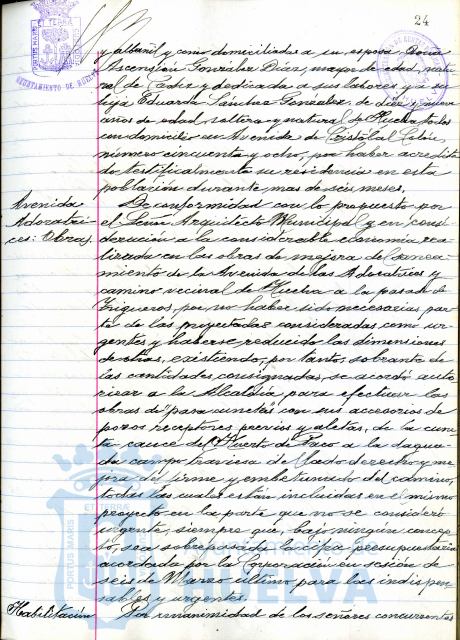 24
y albañil y como domiciliadas a su esposa Doña
Ascensión González Díaz, mayor de edad, natu-
ral de Cádiz y dedicada a sus labores y a su
hija Eduarda Sánchez González, de diez y nueve
años de edad, soltera y natural de Huelva todos
con domicilio en Avenida de Cristóbal Colón,
número cincuenta y ocho, por haber acredita-
do testificalmente su residencia en esta
población durante mas de seis meses.
Avenida
Adoratri-
ces: Obras.
De conformidad con lo propuesto por
el Señor Arquitecto Municipal y en consi-
deración a la considerable economía rea-
lizada en las obras de mejora de Sanea-
miento de la Avenida de las Adoratrices y
camino vecinal de Huelva a la pasada de
Trigueros, por no haber sido necesarias par-
te de las proyectadas consideradas como ur-
gentes y haberse reducido las dimensiones
de otras, existiendo, por tanto, sobrante de
las cantidades consignadas, se acordó auto-
rizar a la Alcaldía para efectuar las
obras de "pasa cunetas" con sus accesorios de
pozos receptores previos y aletas, de la cune-
ta cauce del Huerto de Paco a la
campo traviesa de lado derecho y me-
jora del firme y embetunado del camino,
todas las cuales están incluidas en el mismo
proyecto en la parte que no se consideró
urgente, siempre que, bajo ningún concep-
to, sea sobrepasada la cifra presupuestaria
acordada por la Corporación en sesión de
seis de Marzo último para las indispen-
sables y urgentes.
Habilitación
Por unanimidad de los señores concurrentes
PORTUS MARIS ET TERRAE
AYUNTAMIENTO DE HUELVA
PORTUS MARIS ET TERRAE
HUELVA